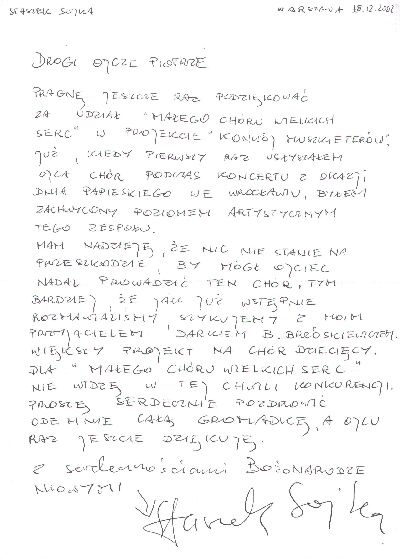 STANISŁAW SOJKA WARSZAWA 18.12.2002
DROGI OJCZE PIOTRZE
PRAGNĘ JESZCZE RAZ PODZIĘKOWAĆ
ZA UDZIAŁ "MAŁEGO CHÓRU WIELKICH
SERC" W PROJEKCIE "KONWÓJ MUSZKIETERÓW".
JUŻ, KIEDY PIERWSZY RAZ USŁYSZAŁEM
OJCA CHÓR PODCZAS KONCERTU Z OKAZJI
DNIA PAPIESKIEGO WE WROCŁAWIU, BYŁEM
ZACHWYCONY POZIOMEM ARTYSTYCZNYM
TEGO ZESPOŁU.
MAM NADZIEJĘ, ŻE NIC NIE STANIE NA
PRZESZKODZIE, BY MÓGŁ OJCIEC
NADAL PROWADZIĆ TEN CHÓR, TYM
BARDZIEJ, ŻE JAK JUŻ WSTĘPNIE
ROZMAWIALIŚMY SZYKUJEMY Z MOIM
PRZYJACIELEM DARKIEM B.
WIĘKSZY PROJEKT NA CHÓR DZIECIĘCY.
DLA "MAŁEGO CHÓRU WIELKICH SERC"
NIE WIDZĘ W TEJ CHWILI KONKURENCJI.
PROSZĘ SERDECZNIE POZDROWIĆ
ODE MNIE CAŁĄ GROMADKĘ, A OJCU
RAZ JESZCZE DZIĘKUJĘ.
Z serdecznościami BOŻONARODZE
NIOWYMI
Stanek Sojka